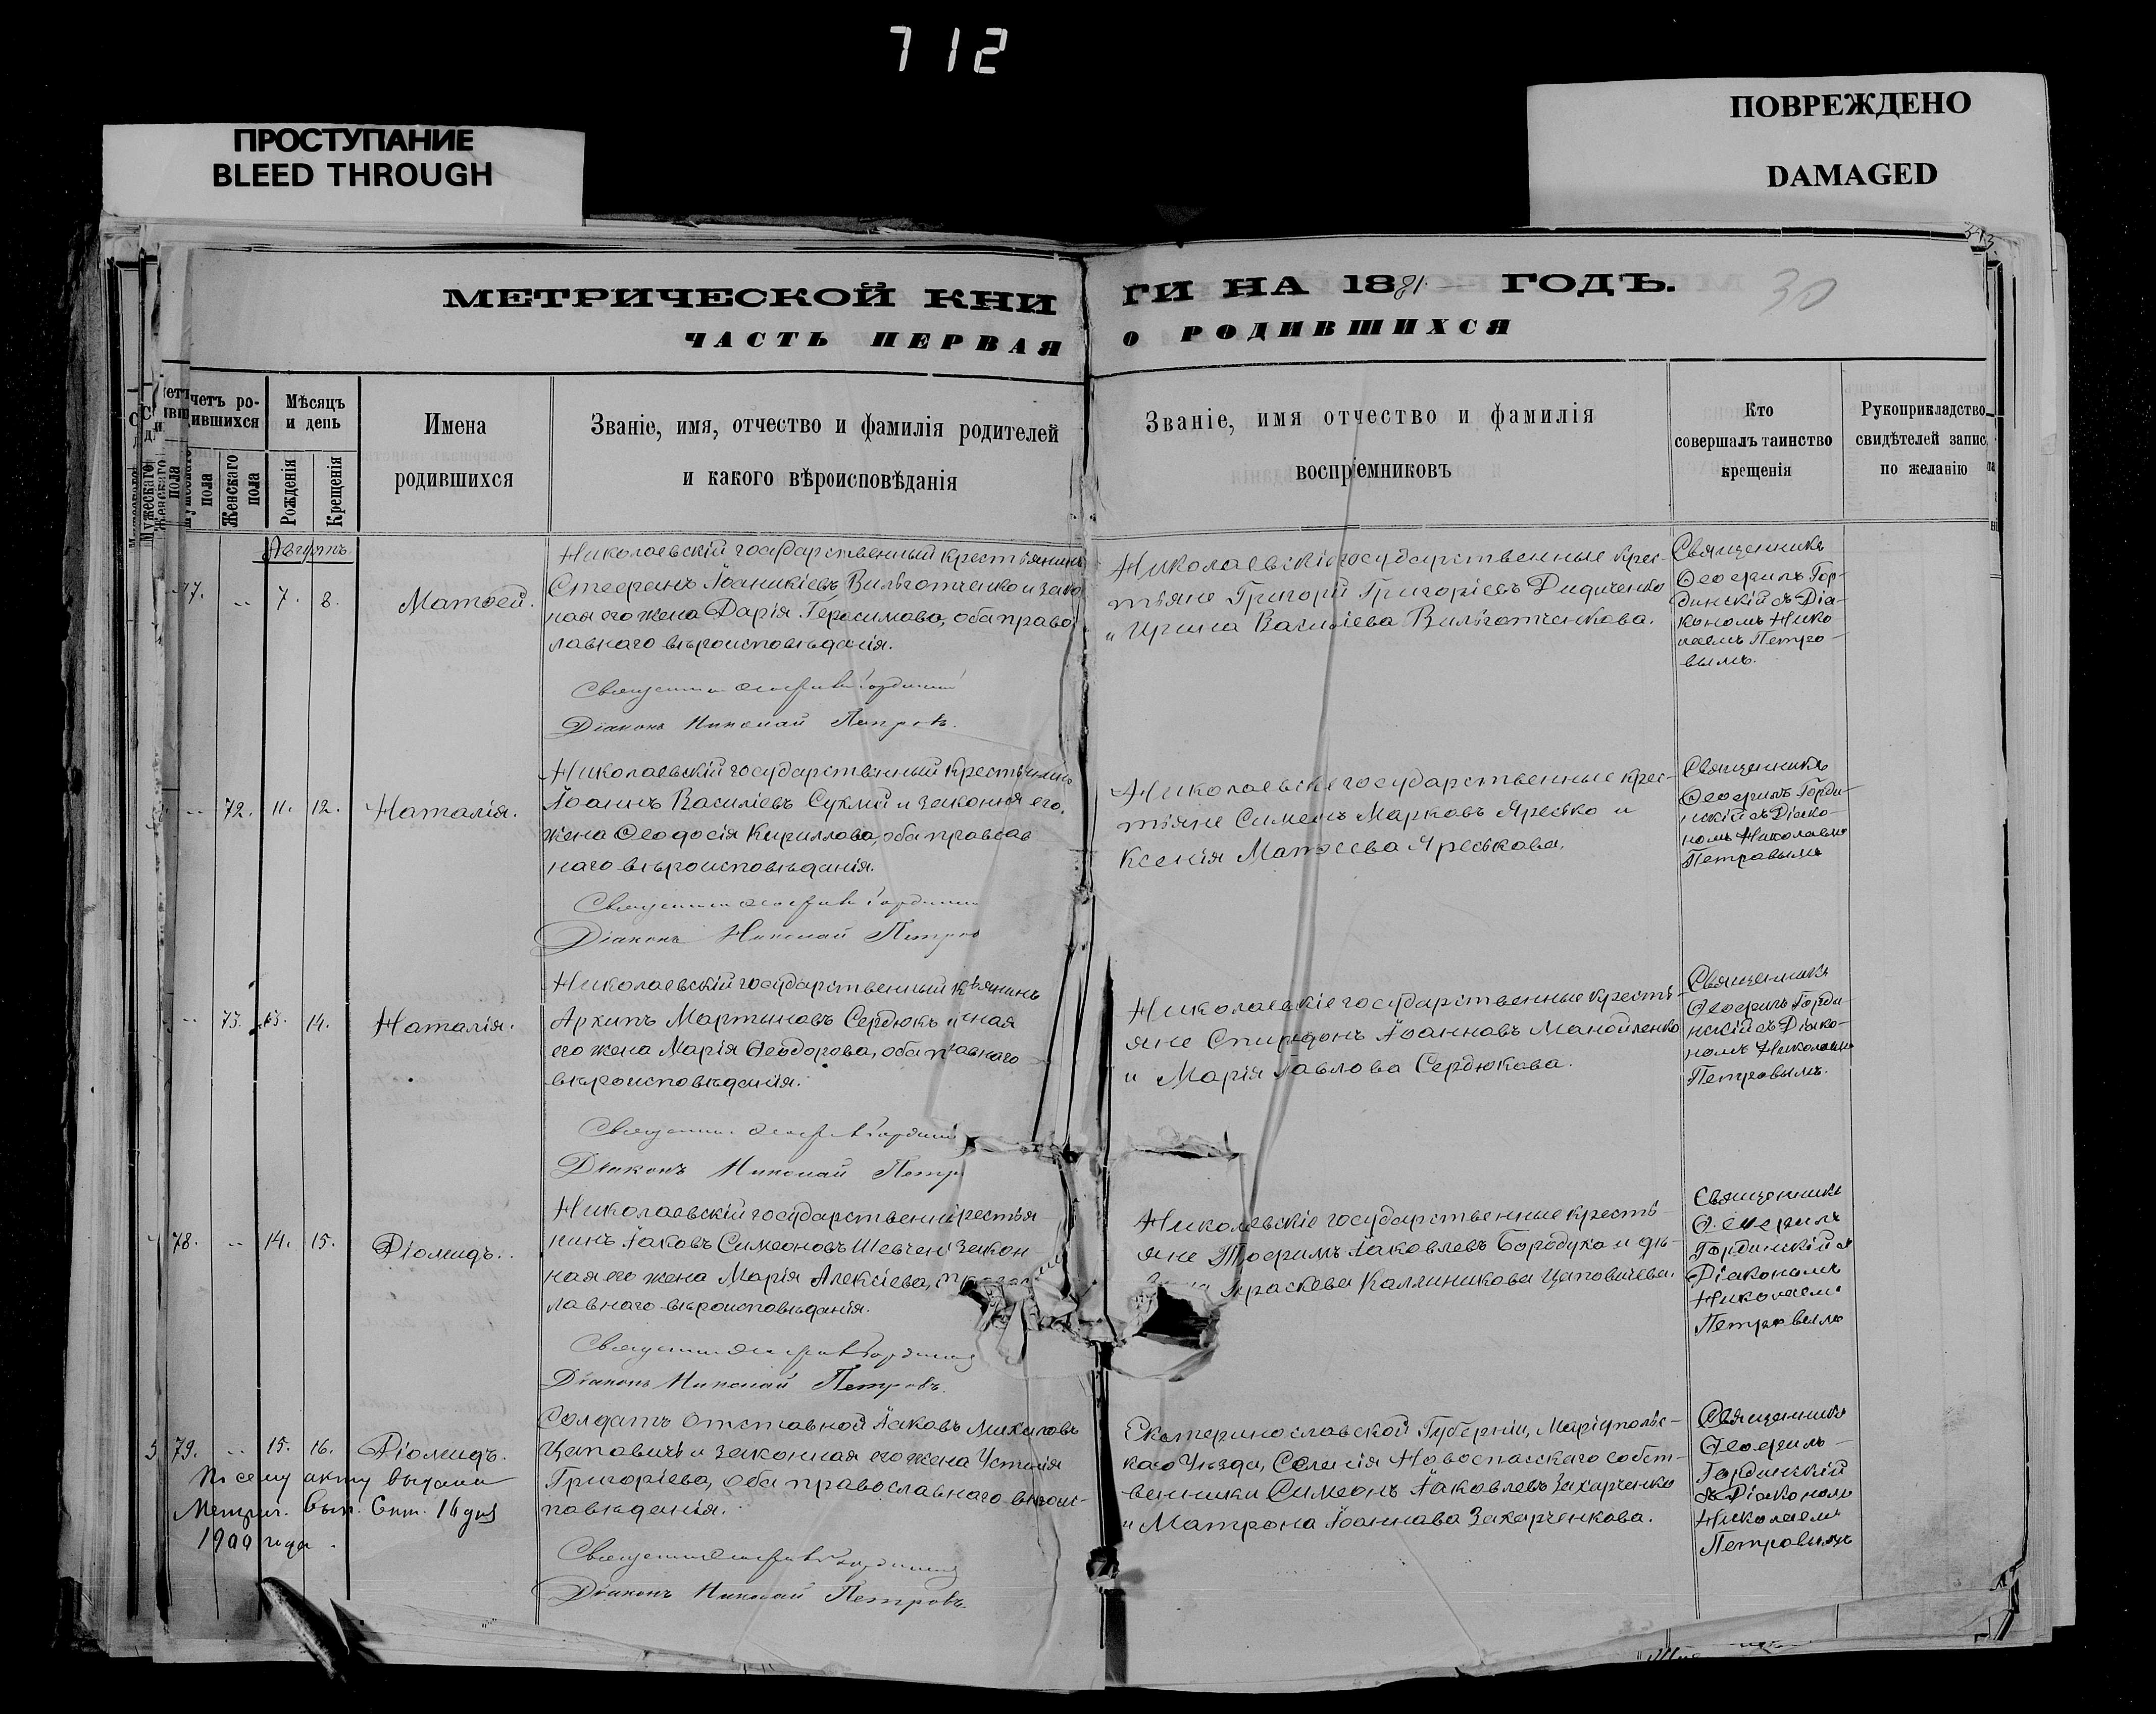 712
ПРОСТУПАНИЕ
BLEED THROUGH
ПОВРЕЖДЕНО
DAMAGED
МЕТРИЧЕСКОЙ КНИ
ГИ НА 1881 ГОДЪ.
30
ЧАСТЬ ПЕРВАЯ
О РОДИВШИХСЯ
четъ ро-
ившихся
пола
Женскаго
пола
Мѣсяцъ
и день
Рожденія
Крещенія
Имена
родившихся
Званіе, имя, отчество и фамилія родителей
и какого вѣроисповѣданія
Званіе, имя отчество и фамилія
воспріемниковъ
Кто
совершалъ таинство
крещенія
Рукоприкладство
свидѣтелей запис
по желанію
Августъ
77. „ 7. 8. Матѳей.
Николаевскій государственный крестьянинъ
Стефанъ Іоаникіевъ Вильготченко и зако
ная его жена Дарія Герасимова, оба право
лавнаго вѣроисповѣданія.
Діаконъ Николай Петровъ.
Николаевскіе государственные крес-
тьяне Григорій Григоріевъ Дидиченко
и Ирина Василіева Вильготченкова.
Священникъ
Ѳеофилъ Гор-
динскій съ Діа-
кономъ Нико
лаемъ Петро-
вымъ.
„ 72. 11. 12. Наталія.
Николаевскій государственный крестьянинъ
Іоаннъ Василіевъ Сухмй и законная его
жена Ѳеодосія Кириллова, оба правосла
наго вѣроисповѣданія.
Діаконъ Николай Петров
Николаевскіе государственные крес-
тьяне Симеонъ Марковъ Яресько и
Ксенія Матѳеева Яреськова.
Священникъ
Ѳеофилъ Горди-
нскій съ Діако-
номъ Николаемъ
Петровымъ
„ 73. 13. 14. Наталія.
Николаевскій государственный к ьянинъ
Архипъ Мартыновъ Сердюкъ и ная
его жена Марія Ѳеодорова, оба п авнаго
вѣроисповѣданія.
Діаконъ Николай Петр
Николаевскіе государственные кресть-
яне Спиридонъ Іоанновъ Манойленко
и Марія Павлова Сердюкова.
Священникъ
Ѳеофилъ Горди-
нскій съ Діако-
номъ Николаемъ
Петровымъ.
78. „ 14. 15. Діомидъ.
Николаевскій государственн рестья-
нинъ Іаковъ Симеоновъ Шевчен закон-
ная его жена Марія Алексіева,
лавнаго вѣроисповѣданія.
Діаконъ Николай Петровъ.
Николаевскіе государственные кресть-
яне Трофимъ Іаковлевъ Бородука и дѣ-
Параскева Каллиникова Цаповичева.
Священникъ
Ѳеофилъ
Гординскій съ
Діакономъ
Николаемъ
Петровымъ
79. „ 15. 16. Діомидъ.
По сему акту выдана
Метрич. вып. Сент. 16 дня
1900 года.
Солдатъ отставной Іаковъ Михаиловъ
Цаповичъ и законная его жена Устинія
Григоріева, оба православнаго вѣроис-
повѣданія.
Діаконъ Николай Петровъ.
Екатеринославской Губерніи, Маріупольс-
каго Уѣзда, Селенія Новоспасскаго собст-
венники Симеонъ Іаковлевъ Захарченко
и Матрона Іоаннова Захарченкова.
Священникъ
Ѳеофилъ
Гординскій
съ Діакономъ
Николаемъ
Петровымъ